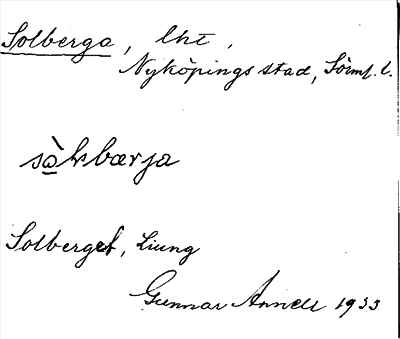 Solberga, lht,
Nyköpings stad, Sörml. l.
Solberget, Ljung
Gunnar Annell 1933